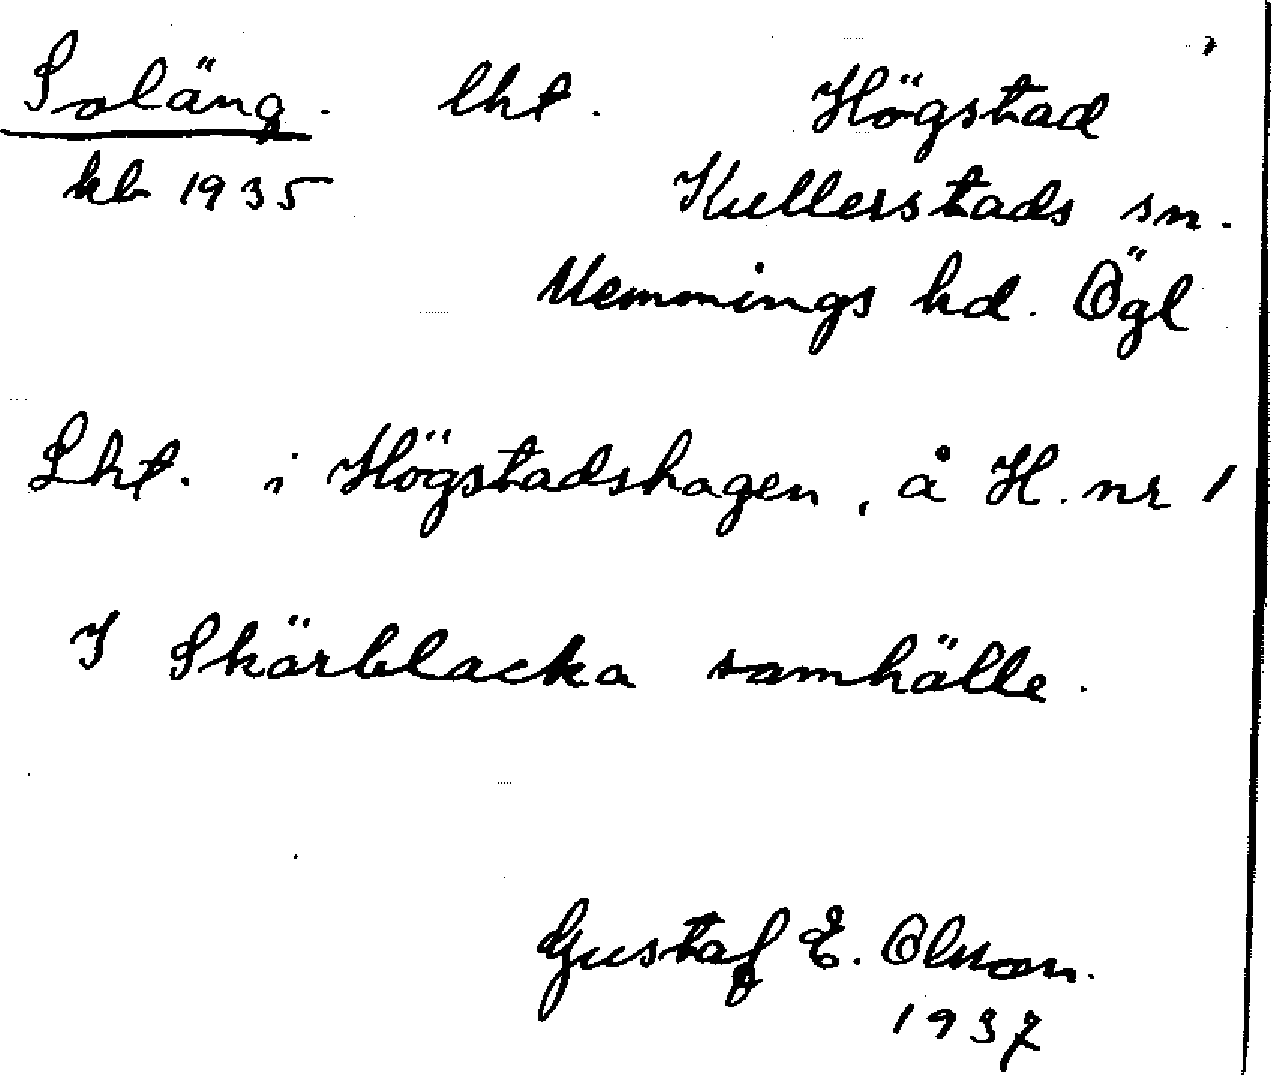 Soläng. lht. Högstad
kb 1935 Kullerstads sn.
Memmings hd. Ögl
Lht. i Högstadshagen, å H. nr 1
I Skärblacka samhälle.
Gustaf E. Olsson.
1937